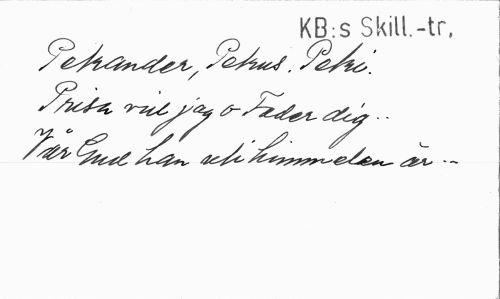 KB:s Skill.-tr.
Pekander, Pekus. Peki.
Prisa vill jag o Fader dig..
Vår Gud han uti himmelen är..